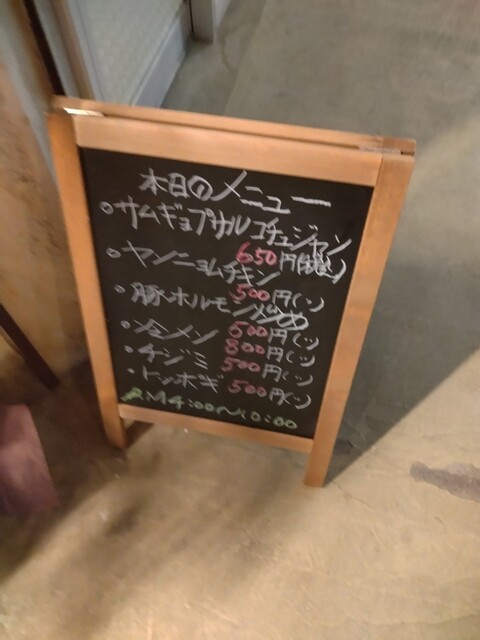 本日のメニュー
○サムギョプサルコチュジャン
650円(税込)
○ヤンニョムチキン
500円(〃)
・豚ホルモン炒め
600円(〃)
・冷メン 800円(〃)
・チヂミ 500円(〃)
・トッポギ 500円(〃)
P.M4:00〜10:00